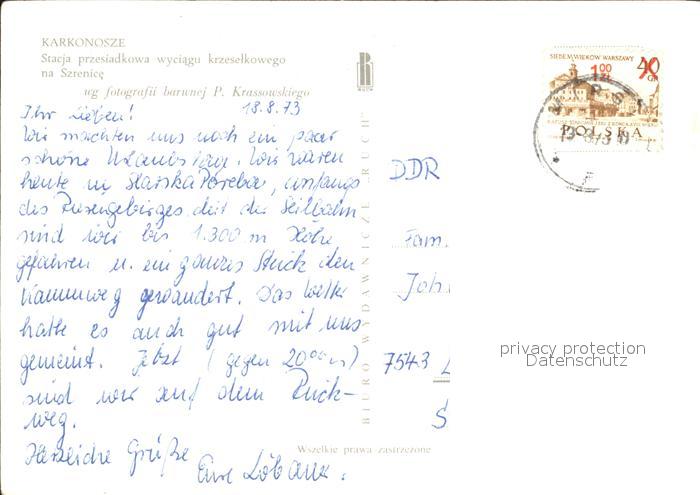 KARKONOSZE
Stacja przesiadkowa wyciągu krzesełkowego
na Szrenicę
wg fotografii barwnej P. Krassowskiego
18.8.73
Ihr Lieben!
Wir machten uns noch ein paar
schöne Urlaubstage. Wir waren
heute in Slarska Poreba, anfangs
des Riesengebirges, mit der Seilbahn
sind wir bis 1.300 m Höhe
gefahren u. ein ganzes Stück den
Kammweg gewandert. Das Wetter
hatte es auch gut mit uns
gemeint. Jetzt (gegen 20 00 Uhr)
sind wir auf dem Rück-
weg.
Herzliche Grüße
Eure
Wszelkie prawa zastrzeżone
BIURO WYDAWNICZE „RUCH"
SIEDEM WIEKÓW WARSZAWY
1 00 ZŁ
40 GR
POLSKA
DDR
Fam.
Joh
7543 L
S
privacy protection
Datenschutz